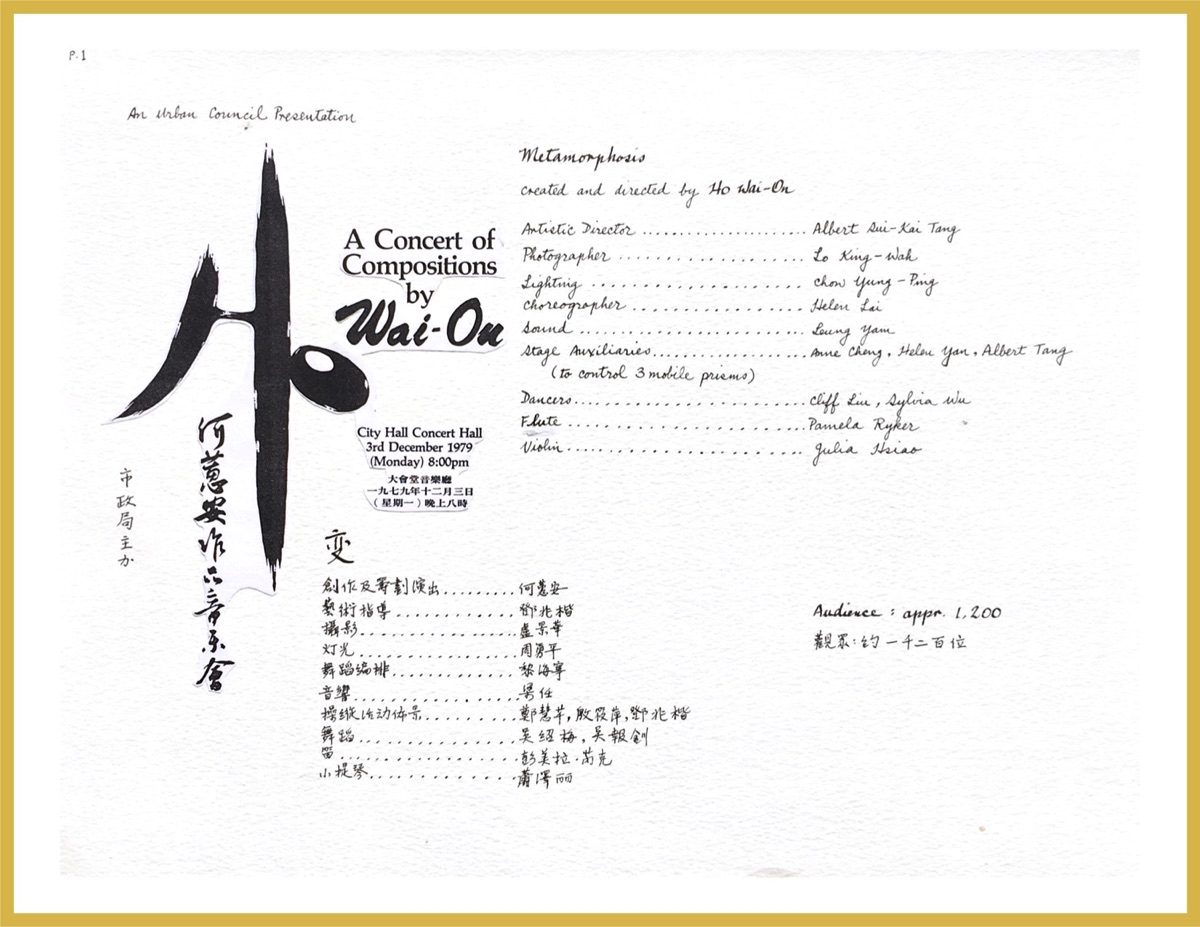 P.1
An Urban Council Presentation
A Concert of
Compositions
by
Wai-On
City Hall Concert Hall
3rd December 1979
(Monday) 8:00pm
大會堂音樂廳
一九七九年十二月三日
（星期一）晚上八時
何蕙安作品音乐會
市政局主办
Metamorphosis
created and directed by Ho Wai-On
Artistic Director ..................... Albert Sui-Kai Tang
Photographer .................... Lo King-Wah
Lighting ....................... Chow Yung-Ping
Choreographer ................... Helen Lai
Sound ........................ Leung Yam
Stage Auxiliaries.................. Anne Cheng, Helen Yan, Albert Tang
(to control 3 mobile prisms)
Dancers.......................... Cliff Liu, Sylvia Wu
Flute ......................... Pamela Ryker
Violin .......................... Julia Hsiao
变
創作及筹劃演出......... 何蕙安
藝術指導............... 鄧兆楷
攝影.................. 盧景華
灯光.................. 周勇平
舞蹈编排............... 黎海寧
音響..................
操縱活动佈景........... 鄭慧芊, 殷筱萍, 鄧兆楷
舞蹈.................. 吴绍梅, 吴報創
笛.................... 彭美拉·芮克
小提琴................ 蕭澤丽
Audience : appr. 1,200
觀眾: 约一千二百位